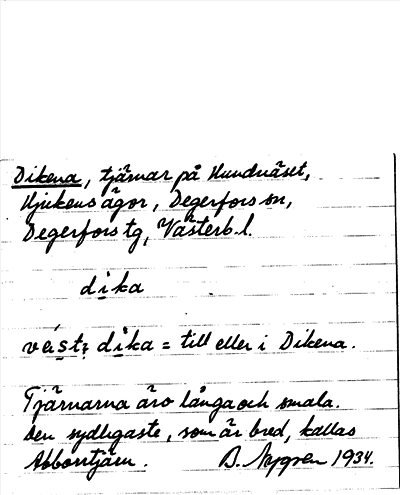 Dikena, tjärnar på Hundnäset,
Hjukens ägor, Degerfors sn,
Degerfors tg, Västerb. l.
dika
vást; dika = till eller i Dikena.
Tjärnarna äro långa och smala.
Den sydligaste, som är bred, kallas
Abborrtjärn. B. Nygren 1934.